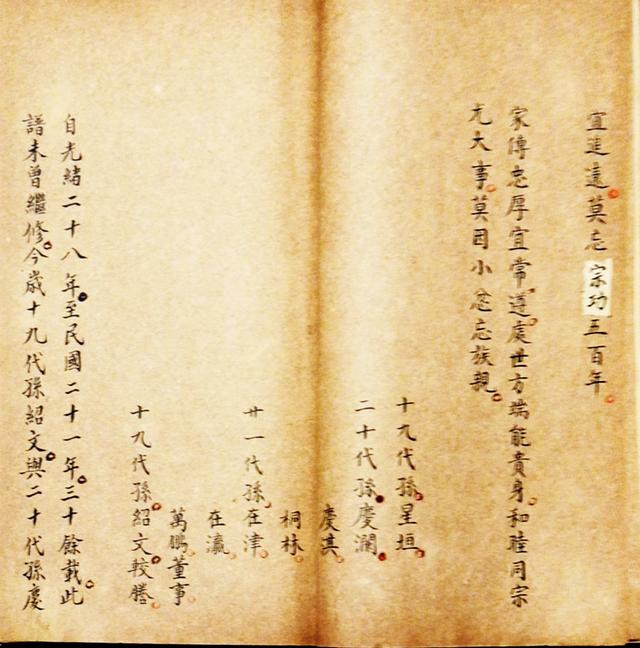 宜進遠莫忘宗功三百年
家傳忠厚宜常遵處世方端能貴身和睦同宗
尤大事莫因小忿忘族親
十九代孫星垣
二十代孫慶瀾
慶其
桐林
廿一代孫在津
在瀛
萬鵬董事
十九代孫紹文較謄
自光緒二十八年至民國二十一年三十餘載此
譜未曾繼修今歲十九代孫紹文與二十代孫慶